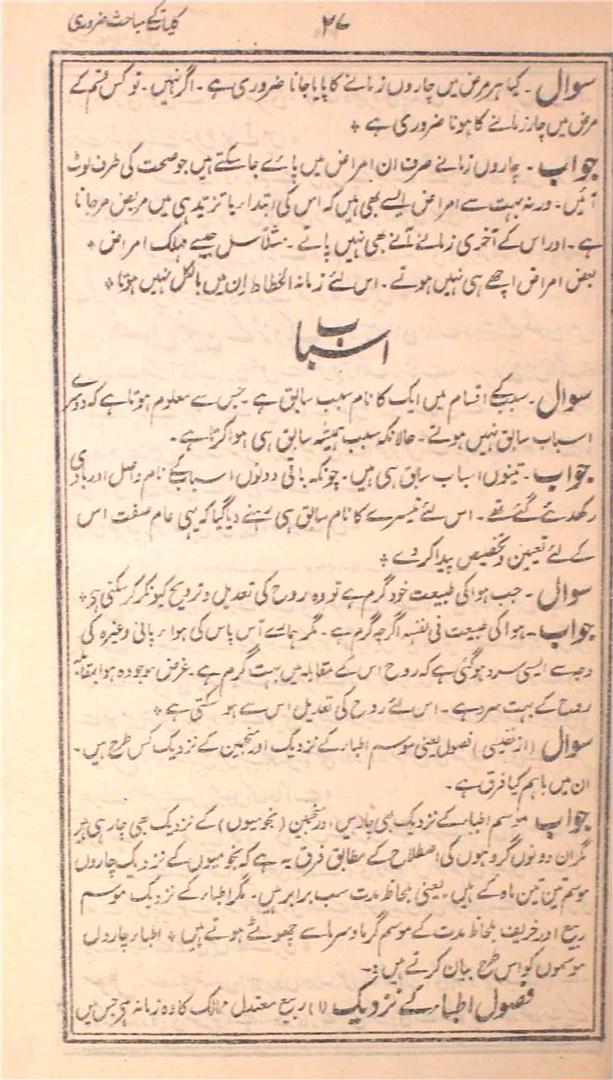 کلیات کے مباحث ضروری
۲۷
سوال ۔ کیا ہر مرض میں چاروں زمانے کا پایا جانا ضروری ہے ۔ اگر نہیں ۔ تو کس قسم کے
مرض میں چار زمانے کا ہونا ضروری ہے ٭
جواب ۔ چاروں زمانے صرف ان امراض میں پائے جا سکتے ہیں جو صحت کی طرف لوٹ
آئیں ۔ ورنہ بہت سے امراض ایسے بھی ہیں کہ اس کی ابتدا یا تزید ہی میں مریض مر جاتا
ہے ۔ اور اس کے آخری زمانے آنے بھی نہیں پاتے ۔ مثلاً سل جیسے مہلک امراض ٭
بعض امراض اچھے ہی نہیں ہوتے ۔ اس لئے زمانہ انحطاط ان میں بالکل نہیں ہوتا ٭
اسباب
سوال ۔ سبب کے اقسام میں ایک کا نام سبب سابق ہے ۔ جس سے معلوم ہوتا ہے کہ دوسرے
اسباب سابق نہیں ہوتے ۔ حالانکہ سبب ہمیشہ سابق ہی ہوا کرتا ہے ۔
جواب ۔ تینوں اسباب سابق ہی ہیں ۔ چونکہ باقی دونوں اسباب کے نام واصل اور بادی
رکھدئے گئے تھے ۔ اس لئے تیسرے کا نام سابق ہی رہنے دیا گیا کہ یہی عام صفت اس
کے لئے تعیین و تخصیص پیدا کر دے ٭
سوال ۔ جب ہوا کی طبیعت خود گرم ہے تو وہ روح کی تعدیل و ترویح کیونکر کر سکتی ہے ٭
جواب ۔ ہوا کی طبیعت فی نفسہ اگرچہ گرم ہے ۔ مگر ہمارے آس پاس کی ہوا پانی وغیرہ کی
وجہ سے ایسی سرد ہو گئی ہے کہ روح اس کے مقابلہ میں بہت گرم ہے ۔ غرض موجودہ ہوا بمقابلہ
روح کے بہت سرد ہے ۔ اس لئے روح کی تعدیل اس سے ہو سکتی ہے ٭
سوال (از نفیسی) فصول یعنی موسم اطباء کے نزدیک اور منجمین کے نزدیک کس طرح ہیں ۔
ان میں باہم کیا فرق ہے ۔
جواب موسم اطباء کے نزدیک بھی چار ہیں ، اور منجمین (نجومیوں) کے نزدیک بھی چار ہی ہیں
مگر ان دونوں گروہوں کی اصطلاح کے مطابق فرق یہ ہے کہ نجومیوں کے نزدیک چاروں
موسم تین تین ماہ کے ہیں ۔ یعنی بلحاظ مدت سب برابر ہیں ۔ مگر اطباء کے نزدیک موسم
ربیع اور خریف بلحاظ مدت کے موسم گرما و سرما سے چھوٹے ہوتے ہیں ٭ اطباء چاروں
موسموں کو اس طرح بیان کرتے ہیں :۔
فصول اطباء کے نزدیک (۱) ربیع معتدل ممالک کا وہ زمانہ ہے جس میں